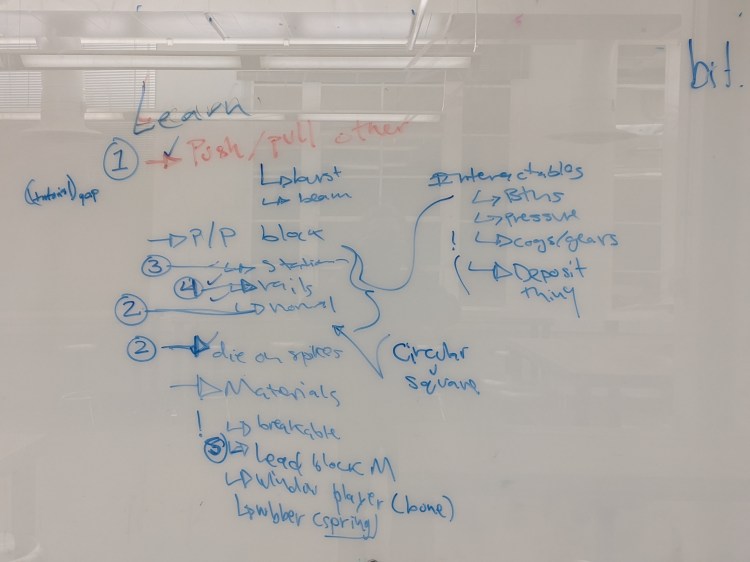 Learn
bit.
① → Push/pull other
(tutorial) gap
↳ burst
↳ beam
→ P/P block
③ ↳ static
④ ↳ rails
② ↳ normal
② → die on spikes
→ Materials
! ↳ breakable
⑤ ↳ Lead block M
↳ player (bone)
↳ rubber (spring)
Interactables
↳ Btns
↳ Pressure
! ↳ cogs/gears
↳ Deposit
thing
Circular
square